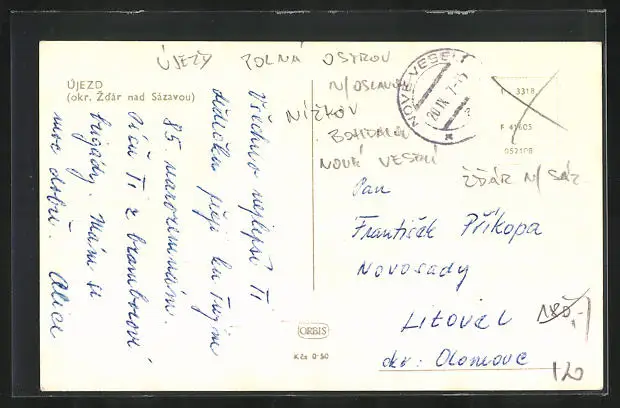 ÚJEZD POLNÁ OSTROV
N/OSLAVOU
NÍŽKOV
BOHDALOV
NOVÉ VESELÍ
ŽĎÁR N/SÁZ
ÚJEZD
(okr. Žďár nad Sázavou)
Všechno nejlepší Ti
dědečku přeji ku Tvým
85. narozeninám.
Píši Ti z bramborové
brigády. Mám se
moc dobře. Alice
NOVÉ VESELÍ
20.IX
3318
F 41605
052108
Pan
František Příkopa
Novosady
Litovel
okr: Olomouc
ORBIS
Kčs 0·50
180,-
120